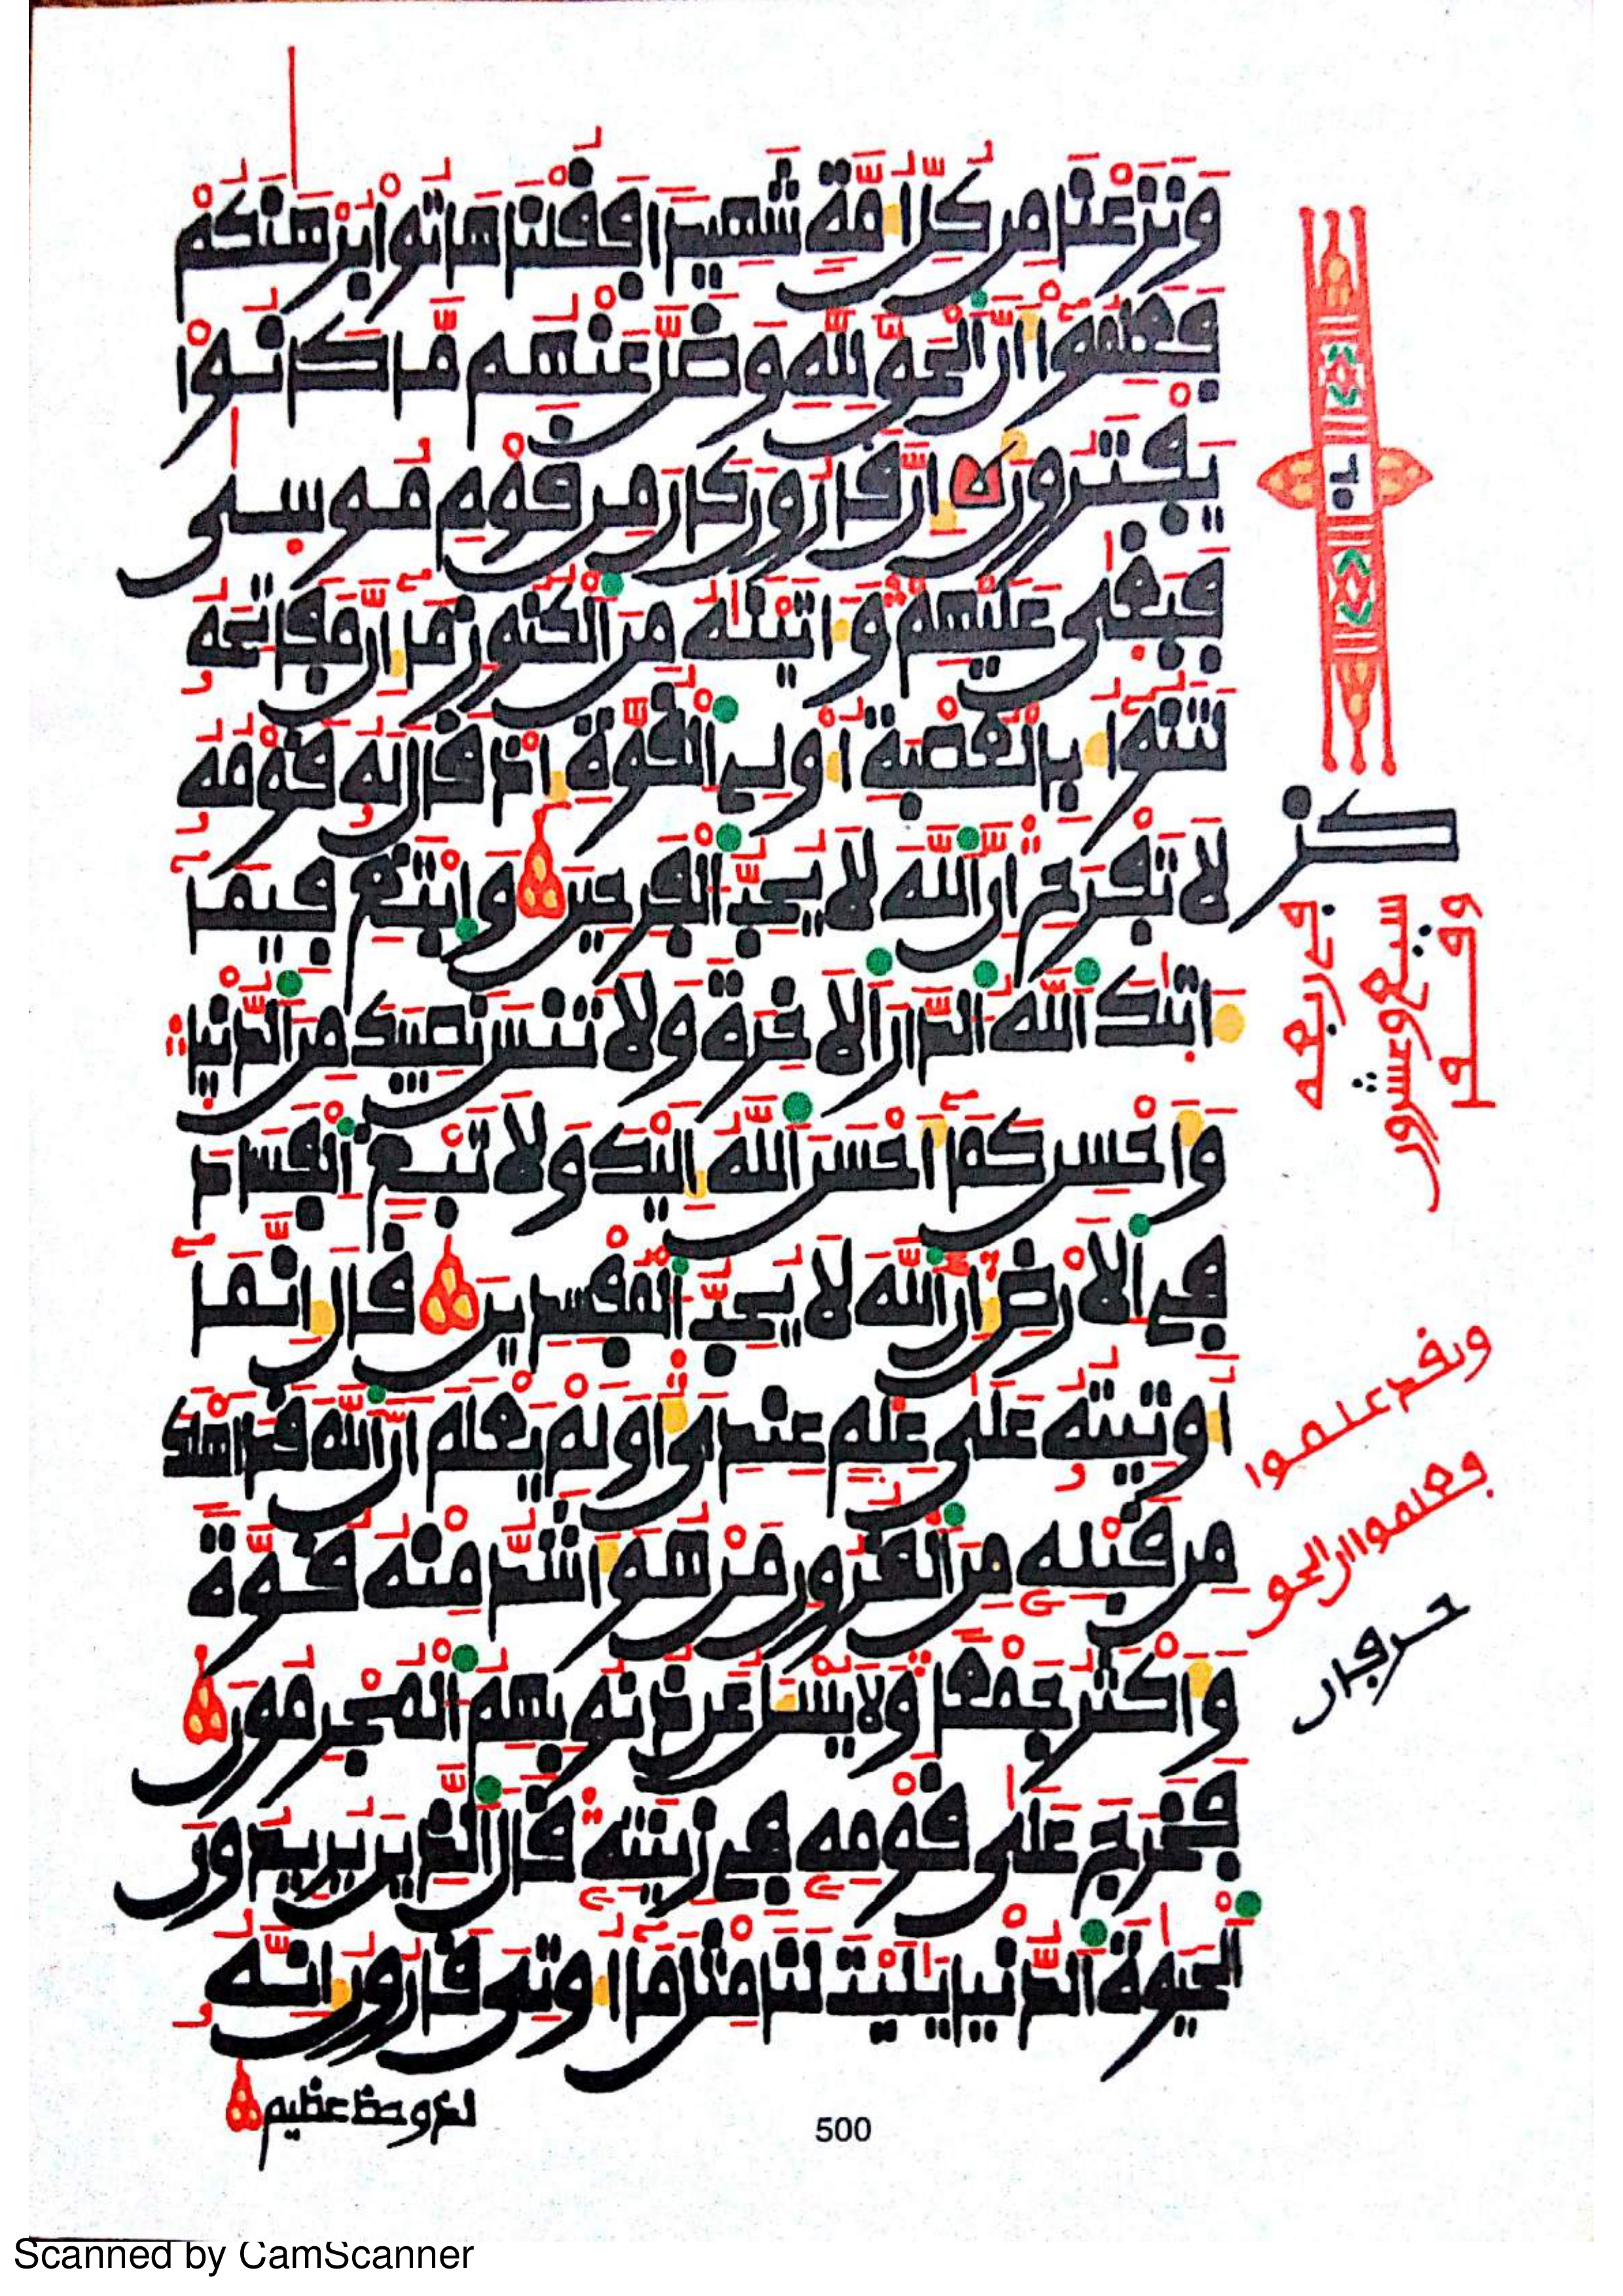 وَنَزَعْنَا مِن كُلِّ أُمَّةٍ شَهِيدًا فَقُلْنَا هَاتُوا بُرْهَٰنَكُمْ
فَعَلِمُوا أَنَّ الْحَقَّ لِلَّهِ وَضَلَّ عَنْهُم مَّا كَانُوا
يَفْتَرُونَ إِنَّ قَٰرُونَ كَانَ مِن قَوْمِ مُوسَىٰ
فَبَغَىٰ عَلَيْهِمْ وَءَاتَيْنَٰهُ مِنَ الْكُنُوزِ مَا إِنَّ مَفَاتِحَهُ
لَتَنُوأُ بِالْعُصْبَةِ أُولِي الْقُوَّةِ إِذْ قَالَ لَهُ قَوْمُهُ
لَا تَفْرَحْ إِنَّ اللَّهَ لَا يُحِبُّ الْفَرِحِينَ وَابْتَغِ فِيمَا
ءَاتَىٰكَ اللَّهُ الدَّارَ الْأَخِرَةَ وَلَا تَنسَ نَصِيبَكَ مِنَ الدُّنْيَا
وَأَحْسِن كَمَا أَحْسَنَ اللَّهُ إِلَيْكَ وَلَا تَبْغِ الْفَسَادَ
فِي الْأَرْضِ إِنَّ اللَّهَ لَا يُحِبُّ الْمُفْسِدِينَ قَالَ إِنَّمَا
أُوتِيتُهُ عَلَىٰ عِلْمٍ عِندِي أَوَلَمْ يَعْلَمْ أَنَّ اللَّهَ قَدْ أَهْلَكَ
مِن قَبْلِهِ مِنَ الْقُرُونِ مَنْ هُوَ أَشَدُّ مِنْهُ قُوَّةً
وَأَكْثَرُ جَمْعًا وَلَا يُسْـَٔلُ عَن ذُنُوبِهِمُ الْمُجْرِمُونَ
فَخَرَجَ عَلَىٰ قَوْمِهِ فِي زِينَتِهِ قَالَ الَّذِينَ يُرِيدُونَ
الْحَيَوٰةَ الدُّنْيَا يَٰلَيْتَ لَنَا مِثْلَ مَا أُوتِيَ قَٰرُونُ إِنَّهُ
لذو حظ عظيم
كز
في ربعه
سبع وعشرون
ولقد علموا
فعلموا ان الحق
حرفان
500
Scanned by CamScanner